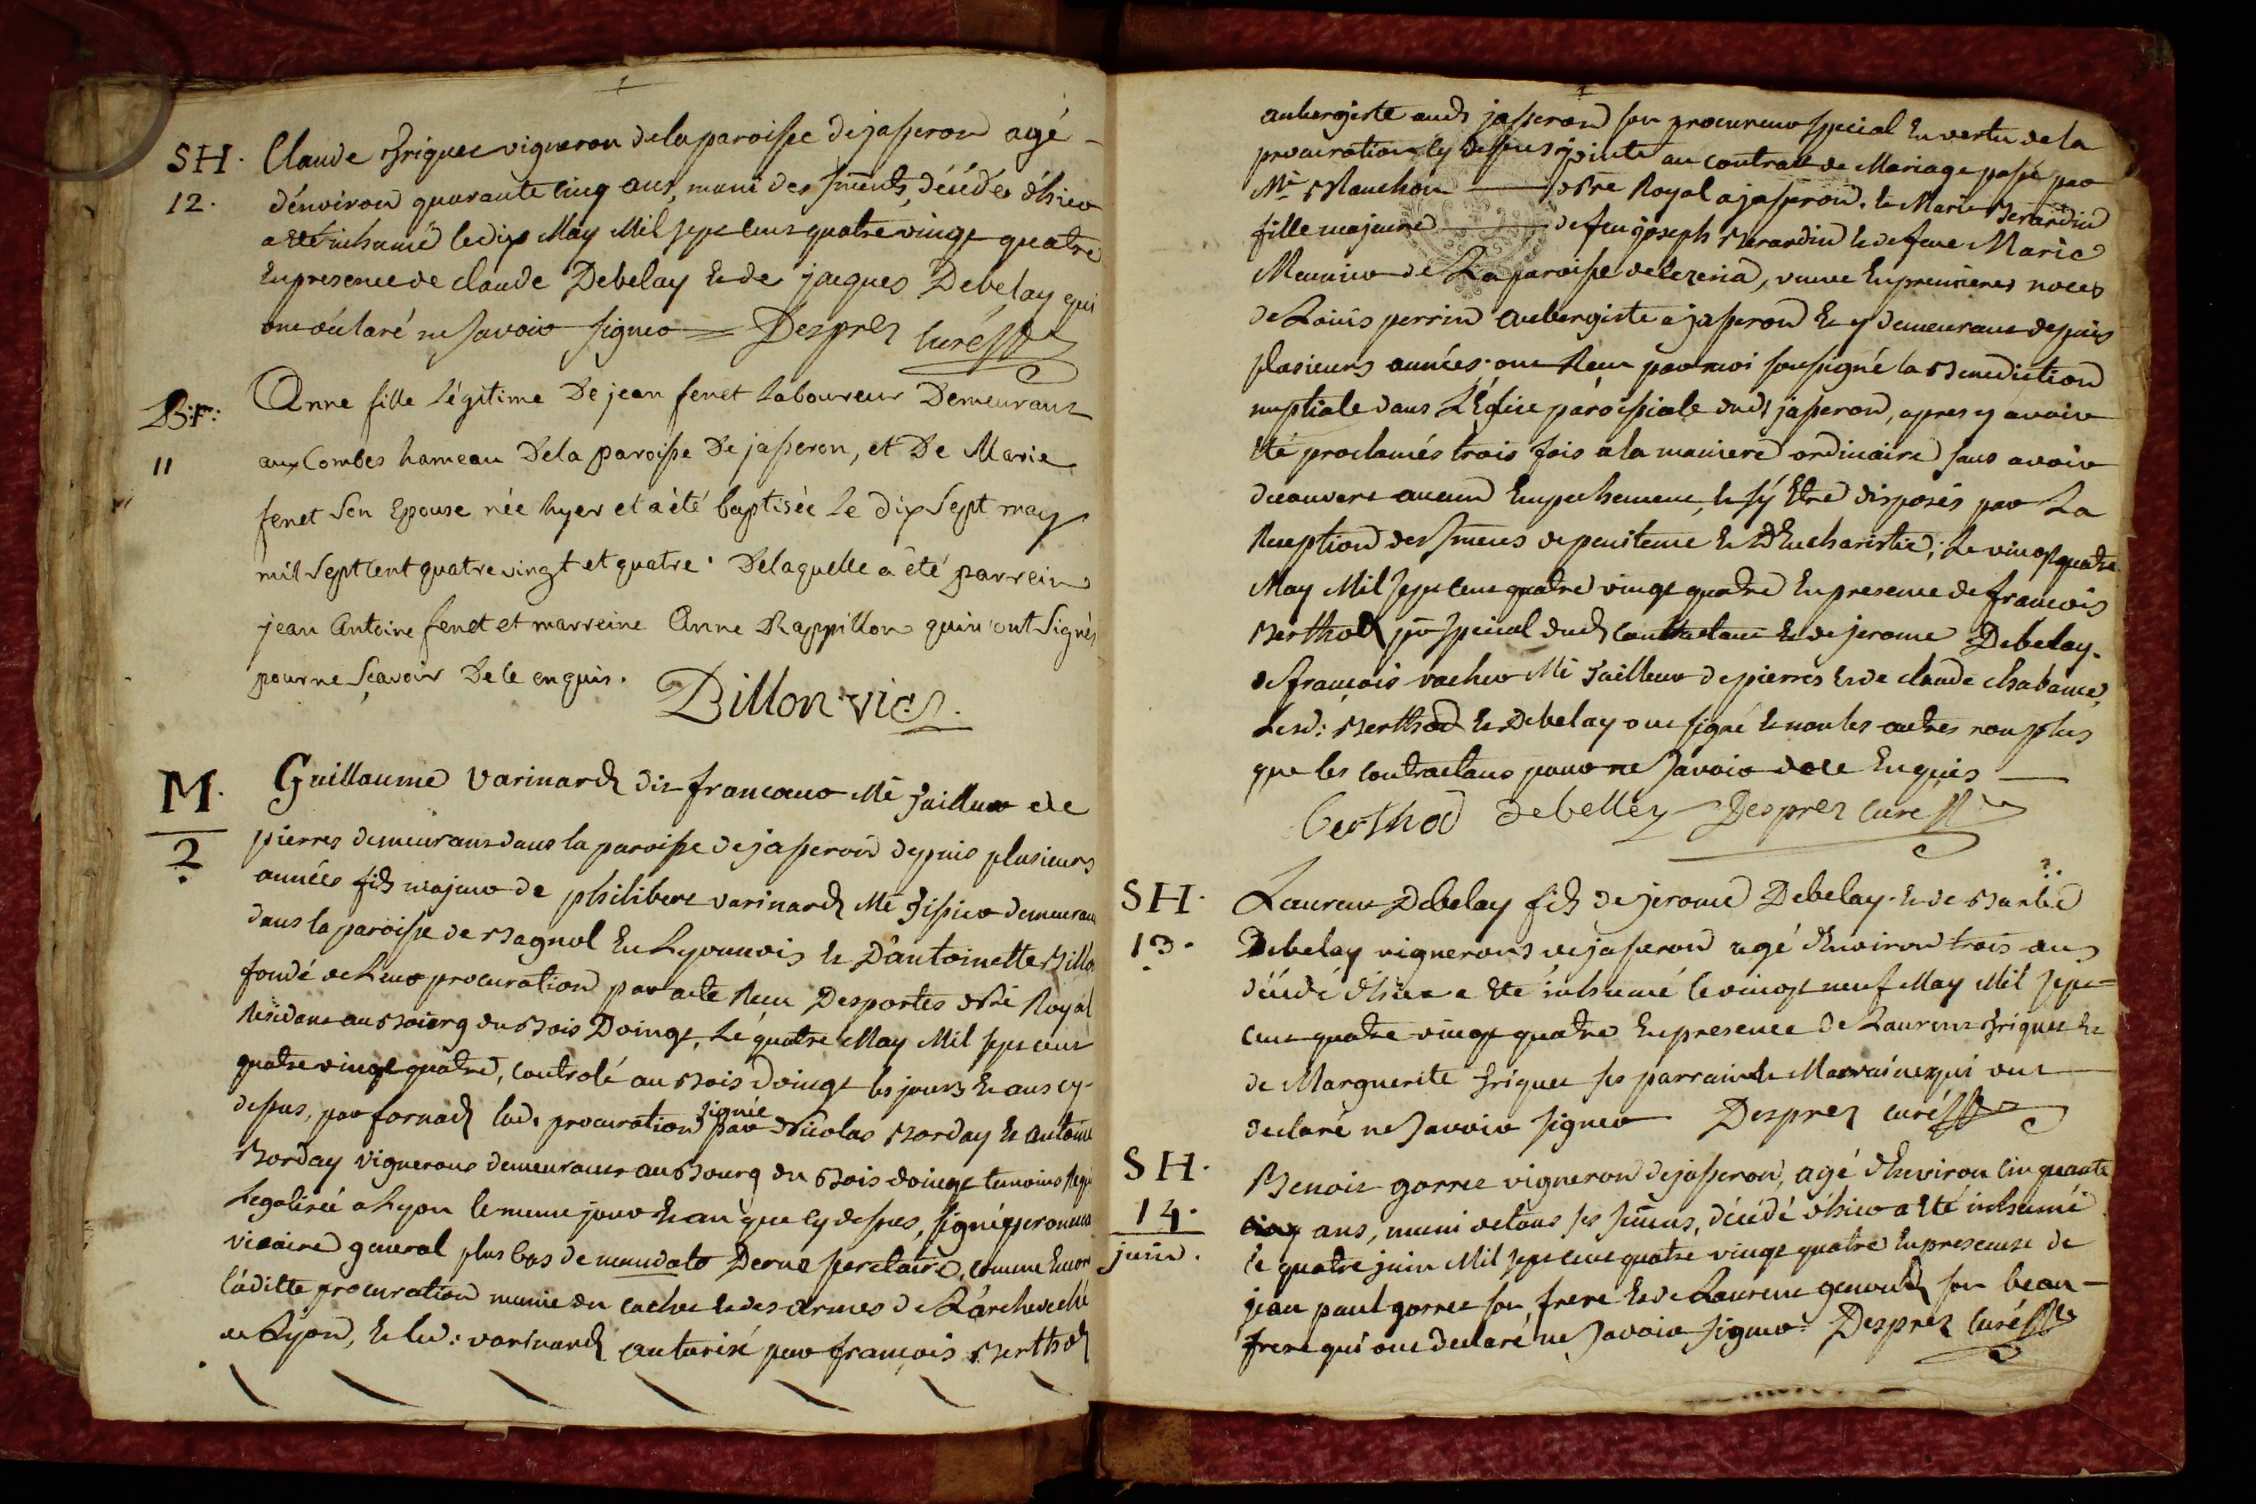 SH. Claude Friquet vigneron de la paroisse de jasseron agé
12. d'environ quarante cinq ans, muni des sments, décédé d'hier
a été inhumé le dix May Mil sept cent quatre vingt quatre
En presence de claude Debelay Et de jacques Debelay qui
ont déclaré ne savoir signer Desprez curé
Bt. Anne fille légitime De jean fenet Laboureur Demeurant
11 aux Combes hameau De la paroisse De jasseron, et De Marie
fenet Son Epouse née hyer et a été baptisée Le dix Sept may
mil Sept Cent quatre vingt et quatre. De laquelle a été parrein
jean Antoine fenet et marreine Anne Rappillon qui n'ont Signés
pour ne Sçavoir De ce enquis.
Dillon vic.
M. Guillaume Varinard dit francoeur Me Tailleur de
2 pierres demeurant dans la paroisse de jasseron depuis plusieurs
années fils majeur de philibert varinard Me Tissier demeurant
dans la paroisse de Bagnol En Lyonnois Et D'antoinette Billo
fondé de Leur procuration par acte Reçu Desportes Nre Royal
Résidant au Bourg du Bois Doingt, Le quatre May Mil sept cent
quatre vingt quatre, controlé au Bois Doingt les jours Et ans cy-
dessus, par fornad lad. procuration signée par Nicolas Borday Et antoine
Borday vignerons demeurants au Bourg du Bois doingt temoins
Legalisée a Lyon le meme jour Et an que cy dessus, signé
vicaire general plus bas de mandato Derue secretaire, comme Encor
laditte procuration munie du cachet Et des armes de L'archeveché
de Lyon, Et led: varinard autorisé par françois Berthod
aubergiste aud. jasseron son procureur special En vertu de la
procuration cy dessus jointe au contrat de Mariage passé par
Me Blanchon Nre Royal a jasseron. Et Marie Berardin
fille majeure de feu joseph Berardin Et de feue Marie
Meunier de La paroisse de lezeria, veuve En premieres noces
de Louis perrin aubergiste a jasseron Et y demeurant depuis
plusieurs années. ont Reçu par moi soussigné la Benediction
nuptiale dans L'Eglise paroissiale dud. jasseron, apres y avoir
Eté proclamés trois fois a la maniere ordinaire sans avoir
decouvert aucun Empechement, Et s'y Etre disposés par La
Reception des sments de penitence Et d'Eucharistie, Le vingt quatre
May Mil sept cent quatre vingt quatre En presence de françois
Berthod pr special dud. contractant Et de jerome Debelay.
de françois vacher Me Tailleur de pierres Et de claude chabance,
Lesd: Berthod Et Debelay ont signé Et non les autres non plus
que les contractans pour ne savoir de ce Enquis
berthod debelley Desprez curé
SH. Laurent Debelay fils de jerome Debelay Et de
13. Debelay vignerons de jasseron agé d'Environ trois ans
décédé d'hier a Eté inhumé le vingt neuf May Mil sept
cent quatre vingt quatre En presence de Laurent friquet Et
de Marguerite friquet ses parrain Et Marraine qui ont
declaré ne savoir signer Desprez curé
SH. Benoit gorret vigneron de jasseron, agé d'Environ cinquante
14. cinq ans, muni de tous ses sments, décédé d'hier a Eté inhumé
juin. le quatre juin Mil sept cent quatre vingt quatre En presence de
jean paul gorret son frere Et de Laurent genoud son beau-
frere qui ont declaré ne savoir signer. Desprez curé